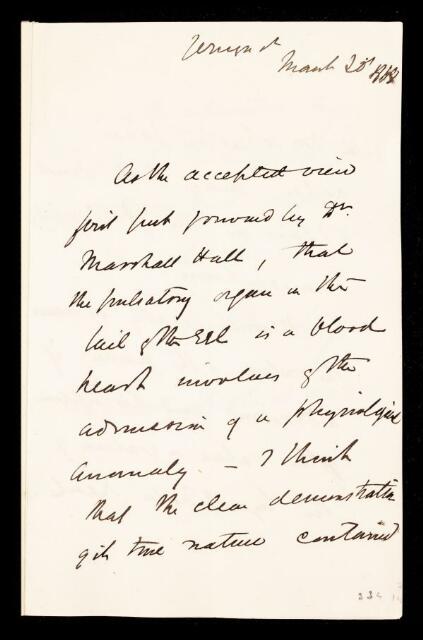 Jermyn St
March 20th 1868
As the accepted view
first put forward by Dr.
Marshall Hall, that
the pulsatory organ in the
tail of the Eel is a blood
heart involves of the
admission of a physiological
anomaly - I think
that the clear demonstration
of its true nature contained